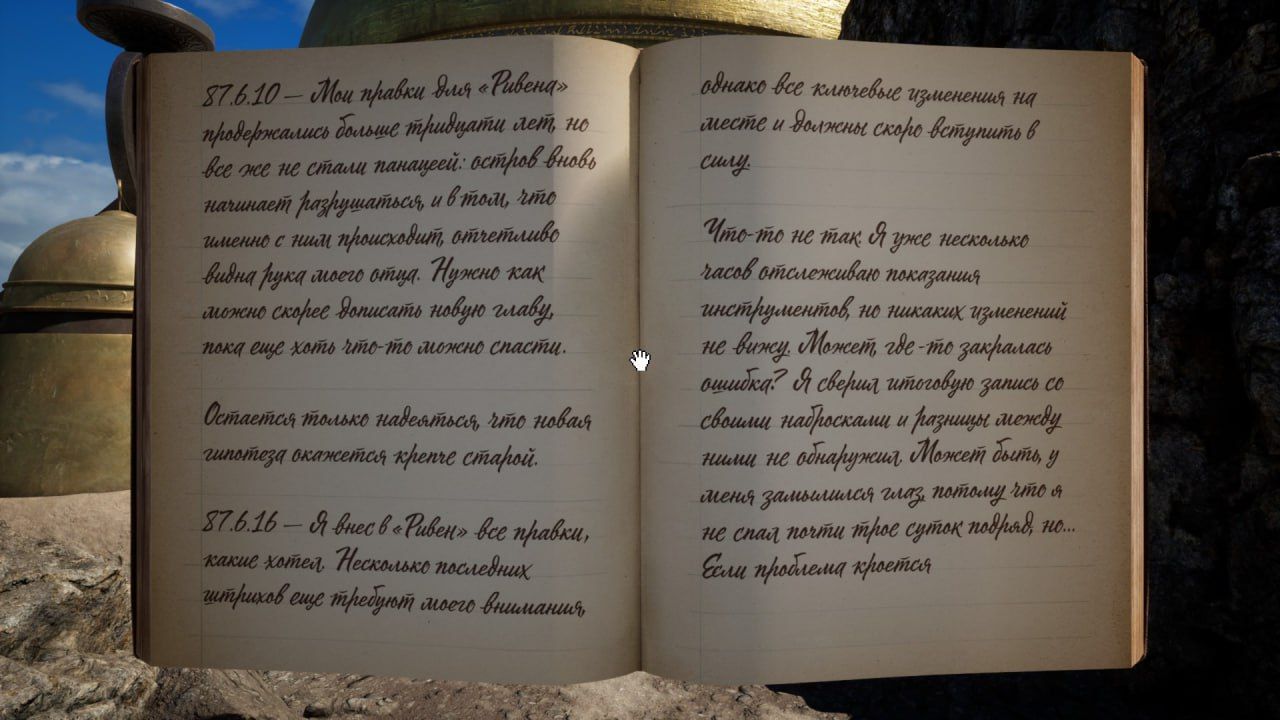 87.6.10 — Мои правки для «Ривена»
продержались больше тридцати лет, но
все же не стали панацеей: остров вновь
начинает разрушаться, и в том, что
именно с ним происходит, отчетливо
видна рука моего отца. Нужно как
можно скорее дописать новую главу,
пока еще хоть что-то можно спасти.
Остается только надеяться, что новая
гипотеза окажется крепче старой.
87.6.16 — Я внес в «Ривен» все правки,
какие хотел. Несколько последних
штрихов еще требуют моего внимания,
однако все ключевые изменения на
месте и должны скоро вступить в
силу.
Что-то не так. Я уже несколько
часов отслеживаю показания
инструментов, но никаких изменений
не вижу. Может, где-то закралась
ошибка? Я сверил итоговую запись со
своими набросками и разницы между
ними не обнаружил. Может быть, у
меня замылился глаз, потому что я
не спал почти трое суток подряд, но...
Если проблема кроется